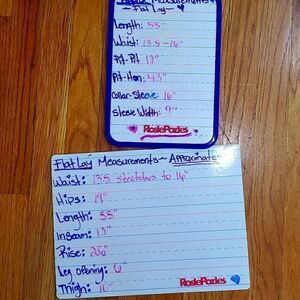 Approx Measurements
~Flat Lay~
Length: 55"
Waist: 13.5-16"
Pit-Pit 17"
Pit-Hem: 43"
Collar-Sleeve: 16"
Sleeve Width: 9"
RosiePosies
Flat Lay Measurements~ Approximate
Waist: 13.5 stretches to 16"
Hips: 19"
Length: 55"
Inseam: 13"
Rise: 26"
Leg opening: 6"
Thigh: 10"
RosiePosies